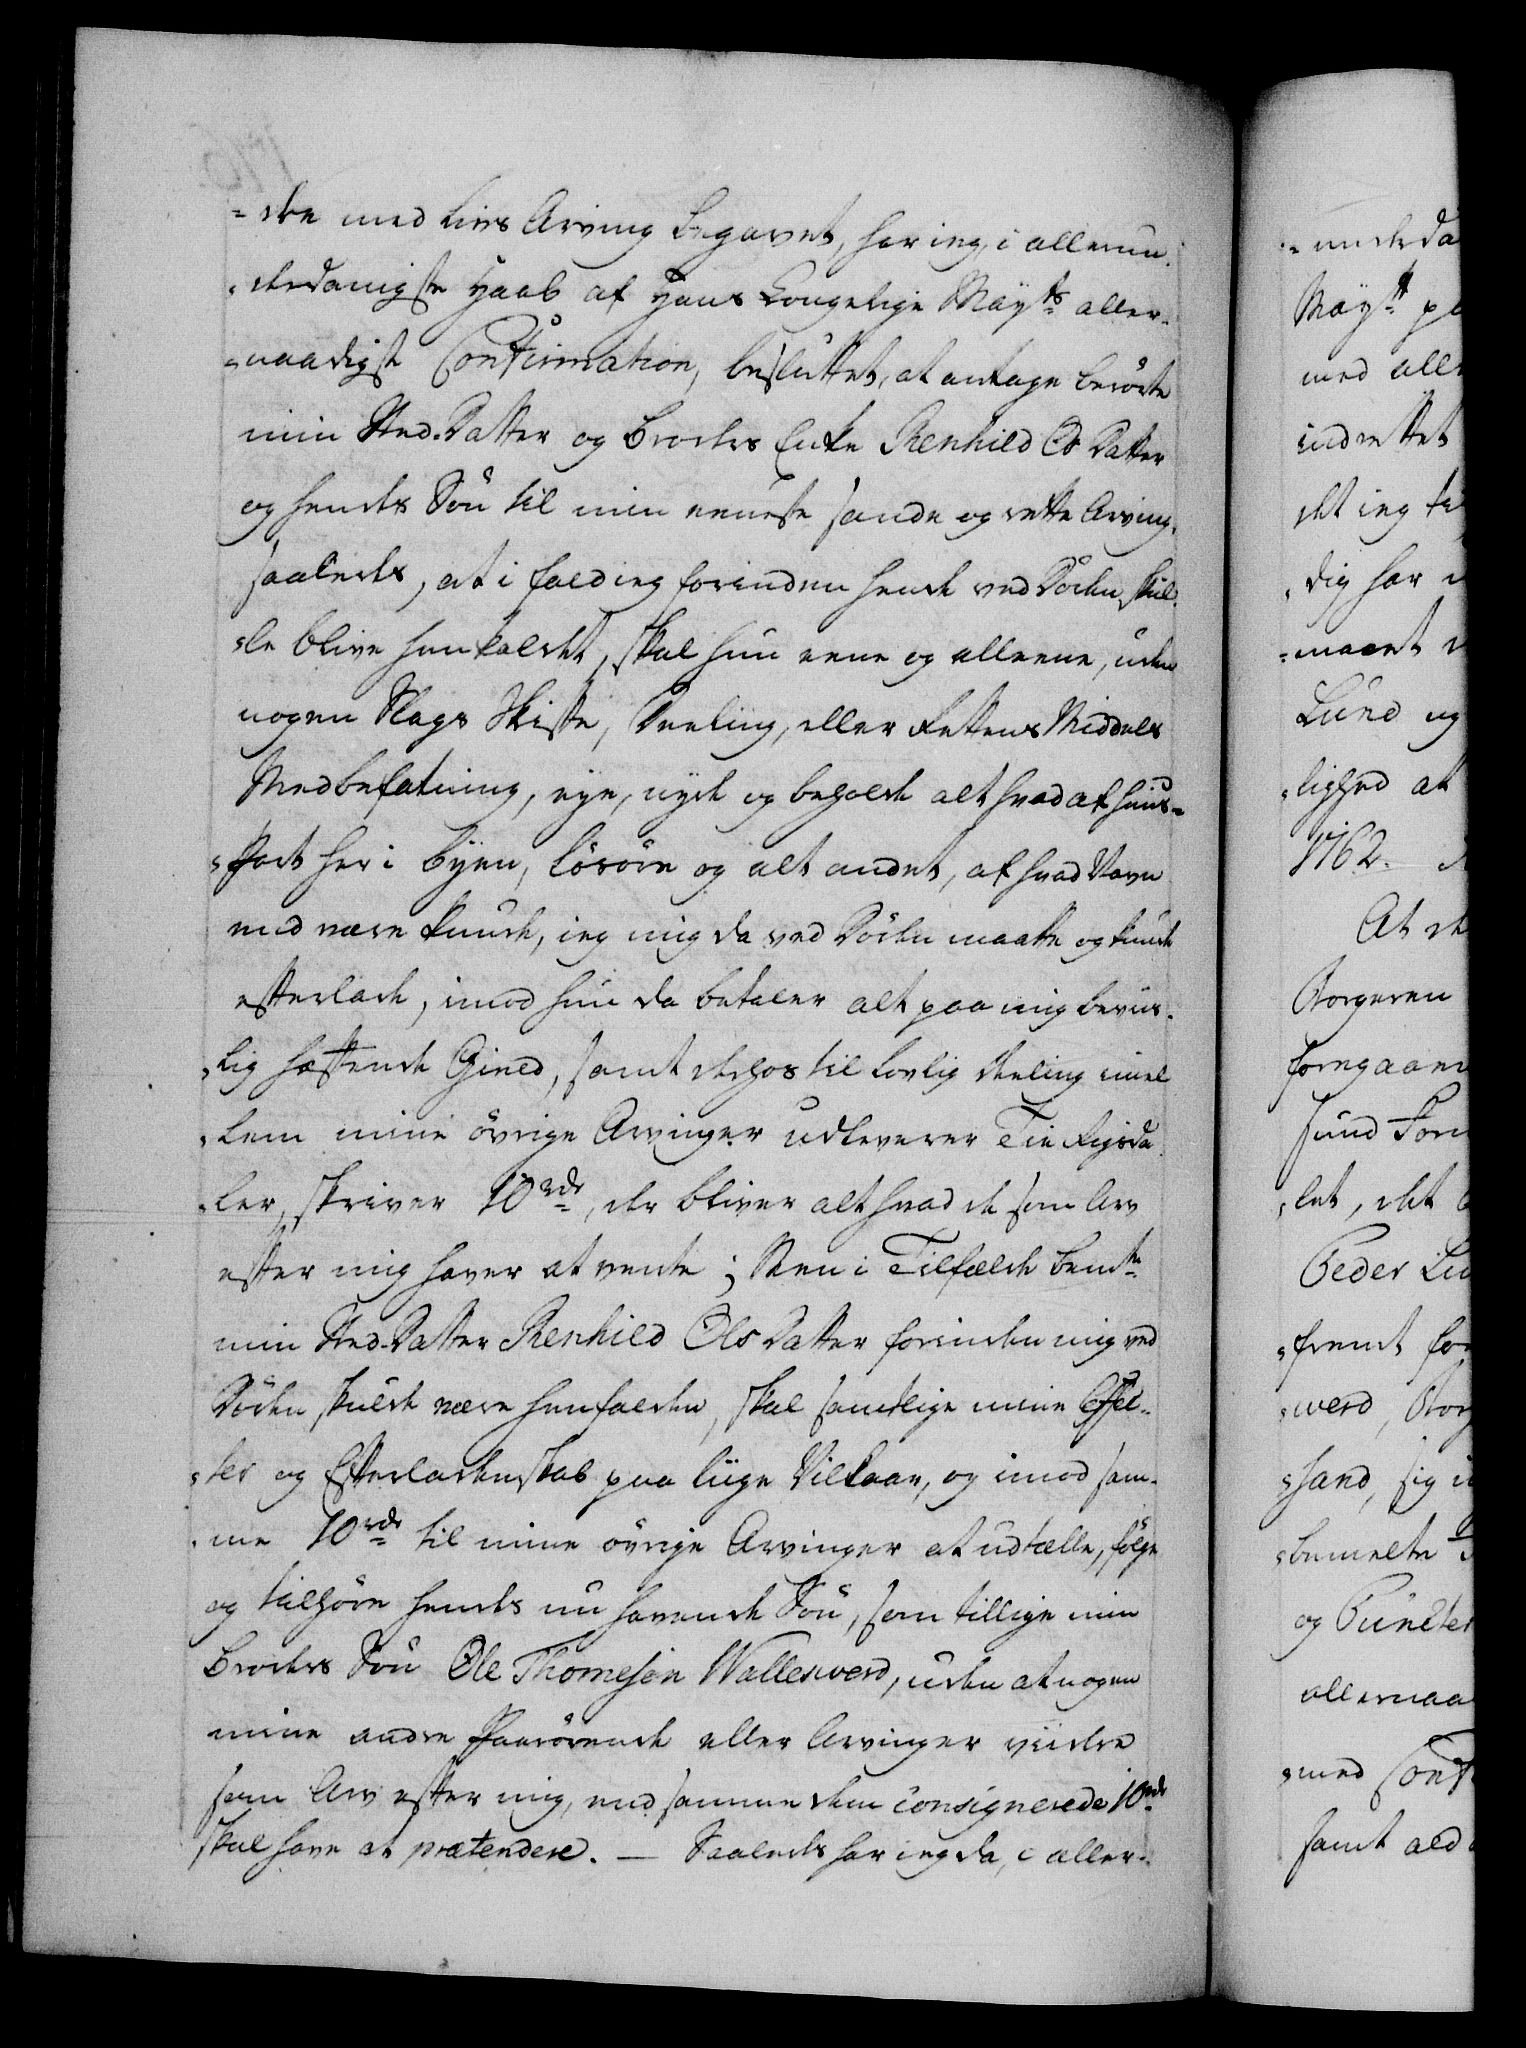 =den med Livs Arving begavet, har ieg, i allerun-
=derdanigste Haab af Hans Kongelige Mayts aller-
=naadigste Confirmation, besluttet, at antage berörte
min Sted-Datter og Broders Enke Renhild Ols Datter
og hendes Sön til min eeneste sande og rette Arving,
saaledes, at i fald ieg forinden hende ved Döden skul-
=le blive henkaldet, skal hun eene og alleene, uden
nogen Slags Skifte, Deeling, eller Rettens Middels
Medbefatning, eye, nyde og beholde alt hvad af huus-
=Part her i Byen, Lösöre og alt andet, af hvad Navn
med være kunde, ieg mig da ved Döden maatte og kunde
efterlade, imod hun da betaler alt paa mig beviis-
=lig hæftende Gield, samt derhos til Lovlig Deeling imel
=lem mine övrige Arvinger udleverer Tie Rigsda-
=ler, skriver 10 rdr, der bliver alt hvad de som Arv
efter mig haver at vente; Men i Tilfælde bemte
min Sted-Datter Renhild Ols Datter forinden mig ved
Döden skulde være henfalden, skal samtlige mine Effec-
=ter og Efterladenskab paa liige Vilkaar, og imod sam-
=me 10 rdr til mine övrige Arvinger at udtælle, fölge
og tilhöre hendes nu havende Sön, som tillige min
Broders Sön Ole Thomesön Walleswerd, uden at nogen
mine andre Paarörende eller Arvinger viidre
som Arv efter mig, end samme dem consignerede 10 rdr
skal have at prætendere. — Saaledes har ieg da, i aller-
=underda
Mayts
med all
indrettet
det ieg
=dig har
=maent
Lund og
=lighed at
1762.
At de
Borgeren
foregaaen
Sund
=let, det
Peder Lu
=fremt for
=werd, Borg
=sand, sig i
=bemelte
og Puncter
allernaa
=med Conf
samt ald